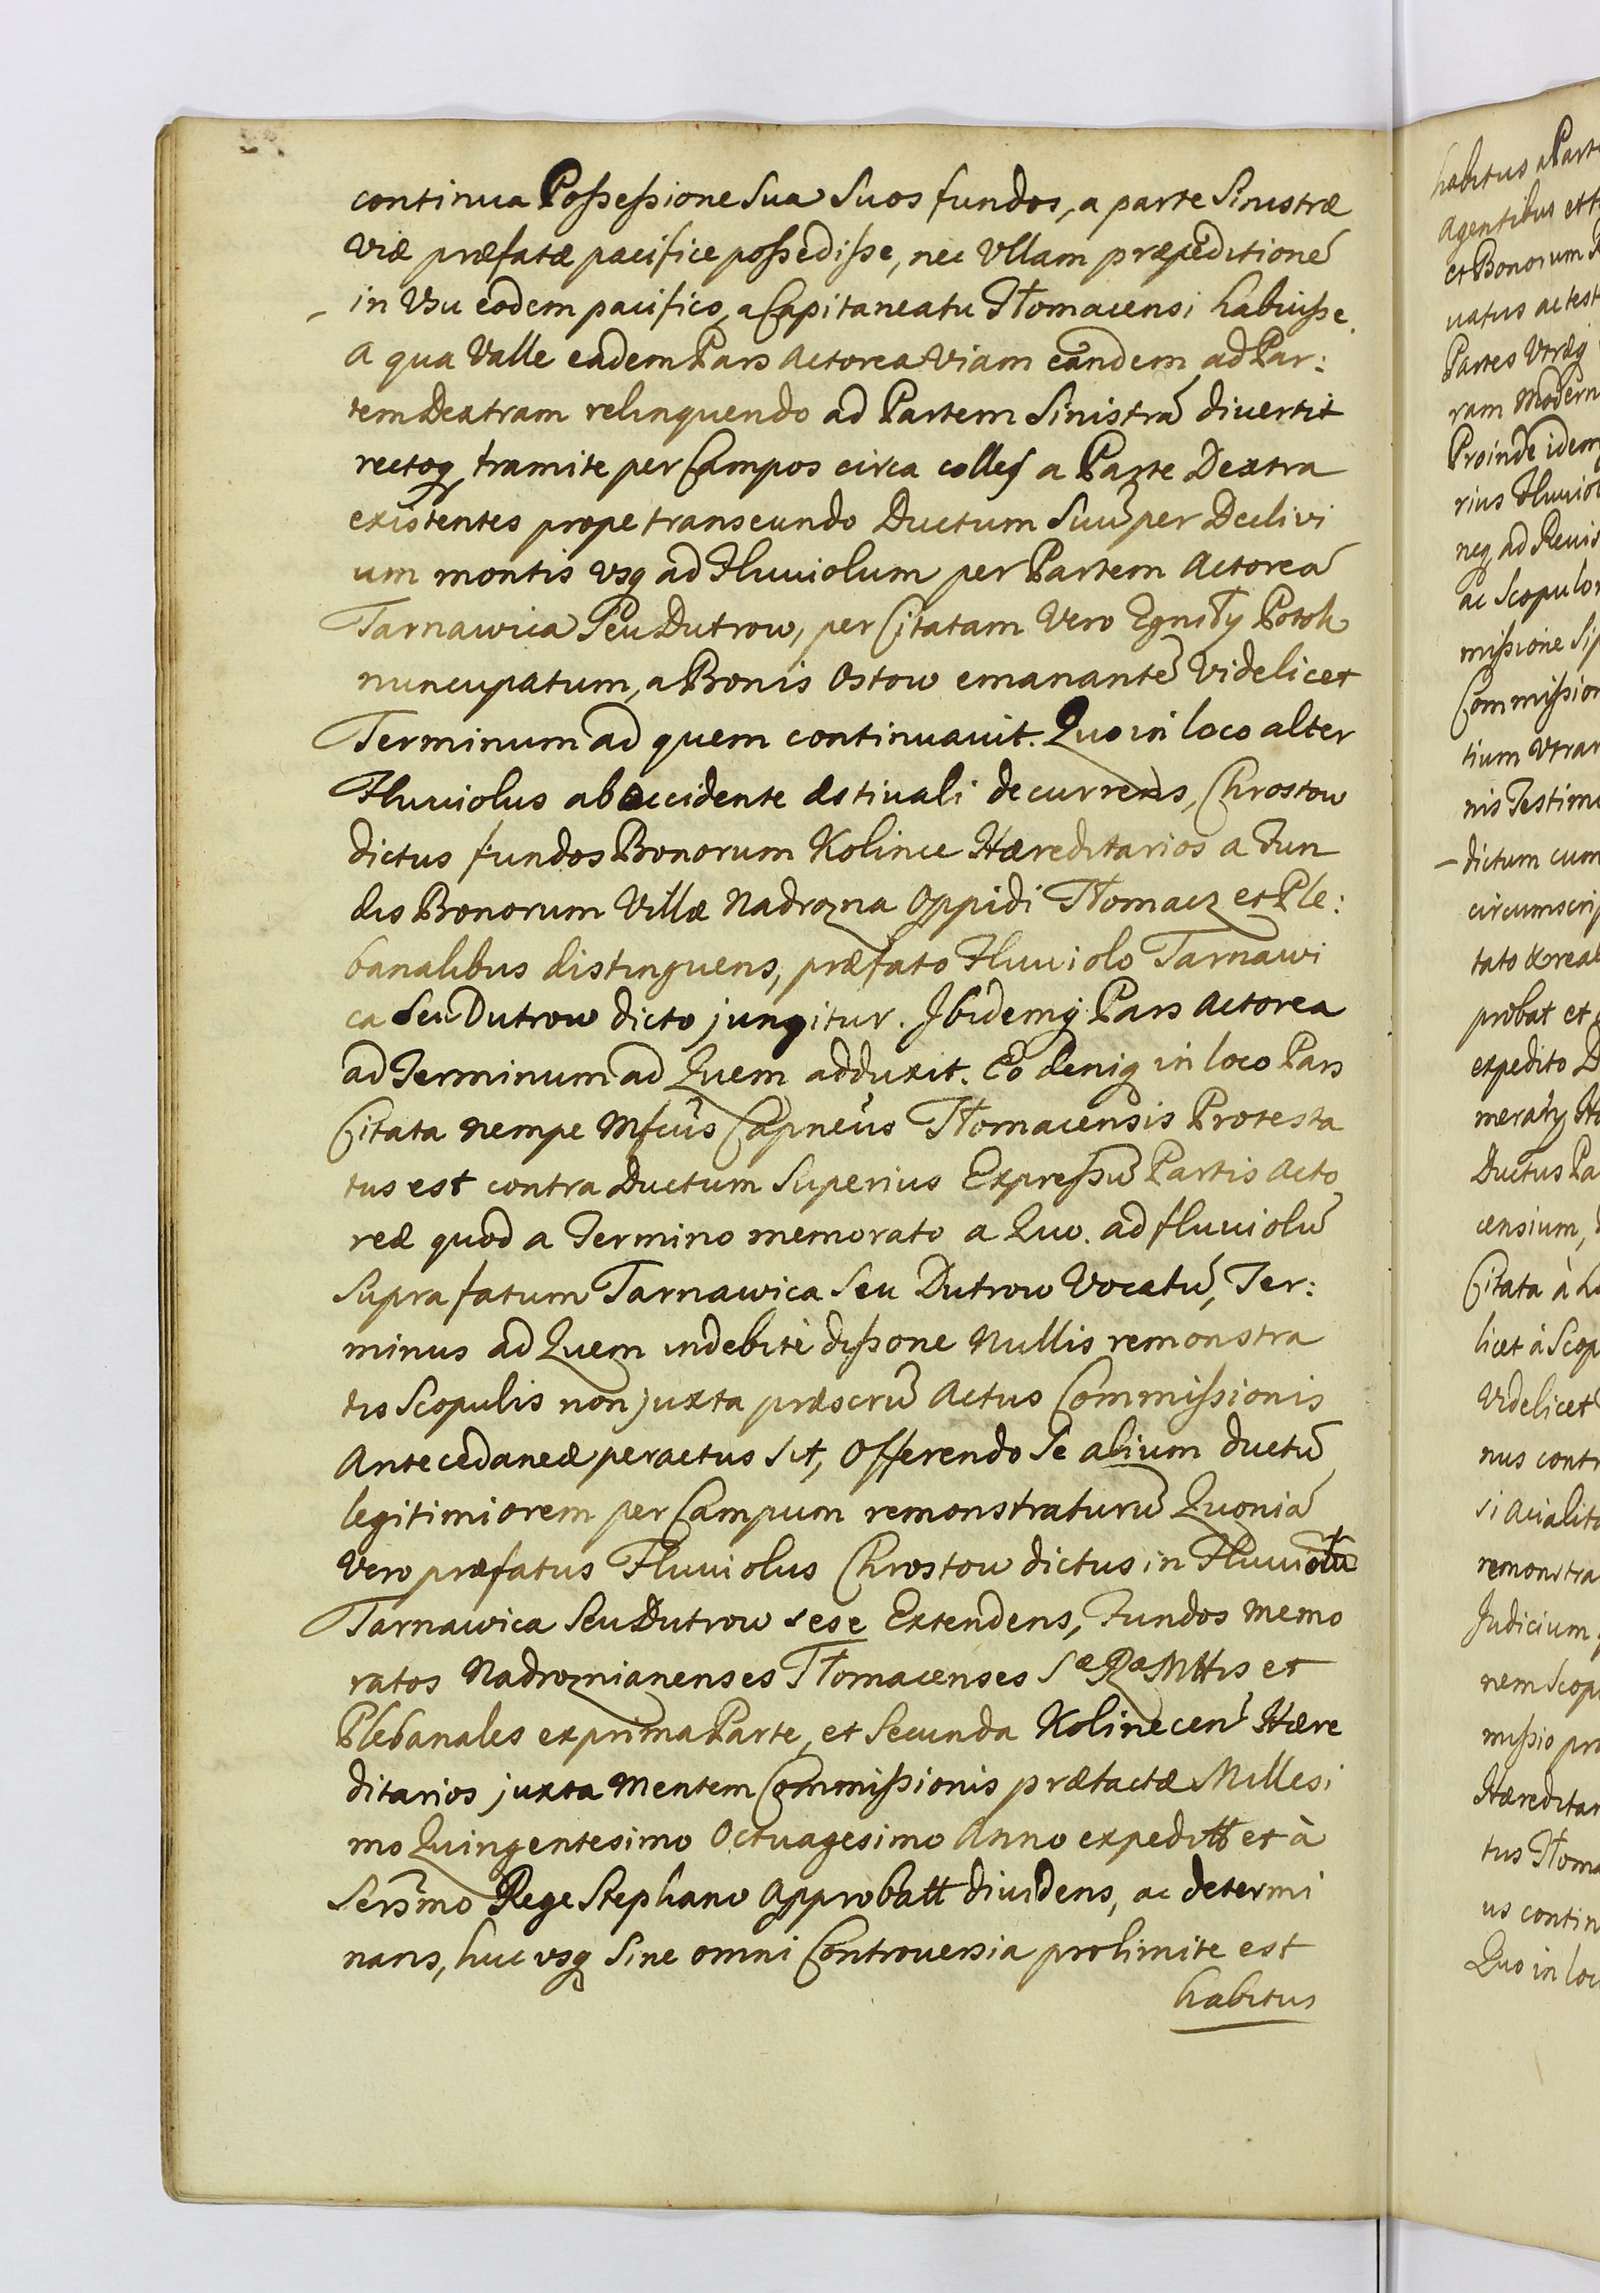 continua Possessione Sua Suos fundos, a parte Sinistræ
Viæ præfatæ pacifice possedisse, nec Ullam præpeditionē
in Vsu eodem pacifico, a Capitaneatu Tłomacensi habuisse.
A qua Valle eadem Pars Actorea Viam eandem ad Par:
tem Dextram relinquendo ad Partem Sinistrā divertit
rectoq tramite per Campos circa colles a Parte Dextra
existentes prope transeundo Ductum Suū per Declivi
um montis vsq ad Fluviolum per Partem Actoreā
Tarnawica Seu Dutrow, per Citatam Vero Potok
nuncupatum, a Bonis Ostow emanantē Videlicet
Terminum ad quem continuauit. Quo in loco alter
Fluuiolus ab Occidente æstiuali decurrens, Chrostow
dictus fundos Bonorum Kolince Hæreditarios a Fun
dis Bonorum Villæ Nadrozna Oppidi Tłomacz et Ple:
banalibus distinguens, præfato Fluuiolo Tarnawi
ca Seu Dutrow dicto jungitur. Ibidemq Pars Actorea
ad Terminum ad Quem adduxit. Eo deniq in loco Pars
Citata nempe Mfcus Capneus Tłomacensis Protesta
tus est contra Ductum Superius Expressū Partis Acto
reæ quod a Termino memorato a Quo. ad fluuiolū
Suprafatum Tarnawica Seu Dutrow Vocatū, Ter:
minus ad Quem indebitè dissone Nullis remonstra
tis Scopulis non juxta præscrū Actus Commissionis
Antecedaneæ peractus sit, Offerendo Se alium ductū
legitimiorem per Campum remonstraturū Quoniā
Vero præfatus Fluuiolus Chrostow dictus in Fluuiolū
Tarnawica Seu Dutrow sese Extendens, Fundos memo
ratos Nadroznianenses Tłomacenses Sæ Ræ Mttis et
Plebanales ex prima Parte, et Secunda Kolinecen Hære
ditarios juxta mentem Commissionis prætactæ Millesi
mo Quingentesimo Octuagesimo Anno expeditt et à
Sersmo Rege Stephano Approbatt diuidens, ac determi
nans, huc vsq Sine omni Controuersia pro limite est
habitus
habitus a Parte
Agentibus et
et Bonorum
uatus ac test
Partes Vtræq
ram Modern
Proinde idem
rius Fluuiol
neq ad Reuis
ac Scopulor
missione
Commission
tium Vtrar
nis Testimo
dictum cum
circumscrip
tato
probat et
expedito D
Ductus Pa
censium,
Citata à
licet à Scop
Videlicet
nus contr
remonstra
Judicium
nem Scop
missio pro
Hæreditar
tus Tłoma
us contin
Quo in loc